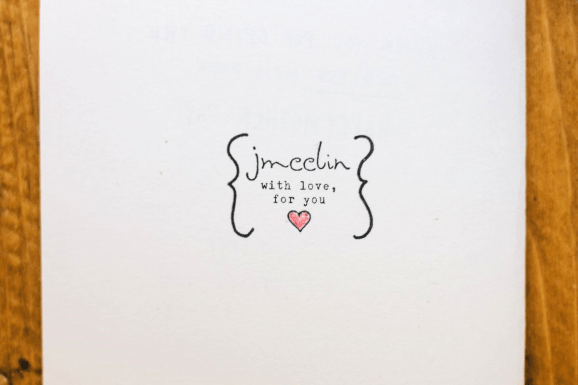 jmeelin
with love,
for you